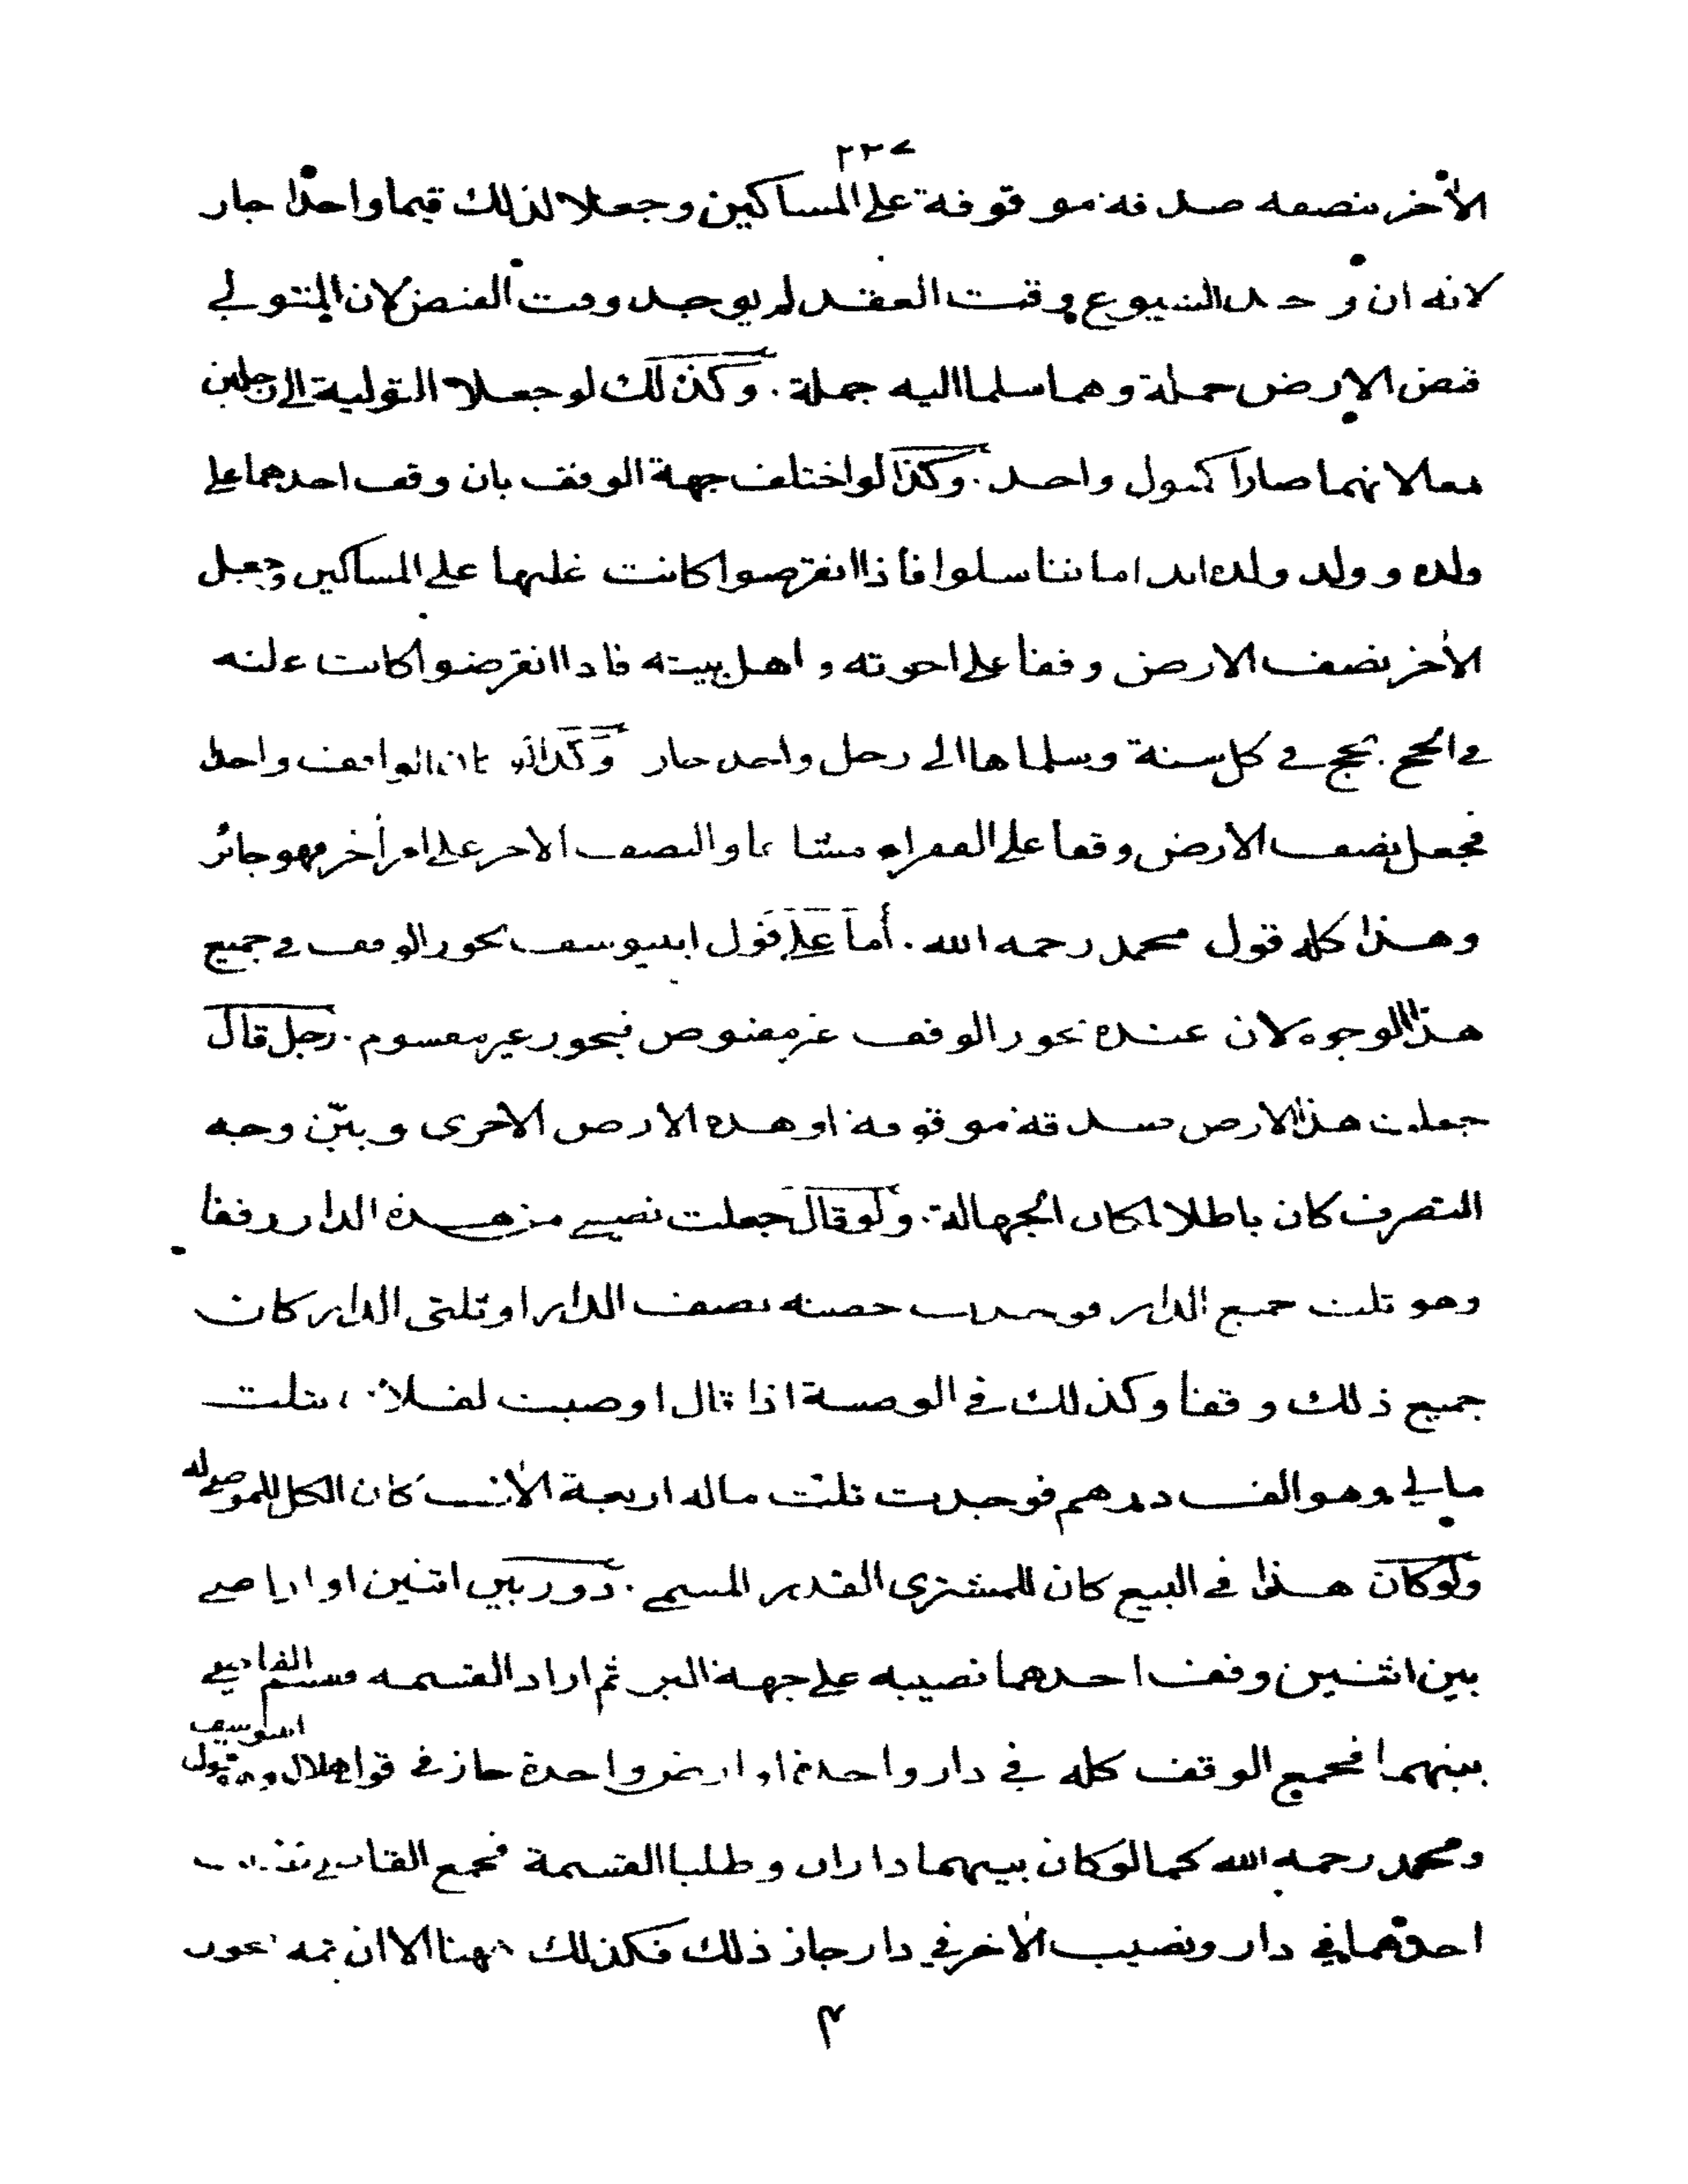 ٢٢٧
الآخر بنصفه صدقة موقوفة على المساكين وجعلا لذلك قيما واحدا جاز
لانه ان وجد الشيوع وقت العقد لم يوجد وقت القبض لان المتولي
قبض الارض جملة وهما سلما اليه جملة. وكذلك لو جعلا التولية الى رجلين
معا لانهما صارا كمتول واحد. وكذا لو اختلف جهة الوقف بان وقف احدهما على
ولده وولد ولده ابدا ما تناسلوا فاذا انقرضوا كانت غلتها على المساكين وجعل
الآخر نصف الارض وقفا على اخوته واهل بيته فاذا انقرضوا كانت غلته
في الحج يحج في كل سنة وسلماها الى رجل واحد جاز وكذا لو كان الواقف واحدا
فجعل نصف الارض وقفا على الفقراء مشاعا والنصف الاخر على امر آخر فهو جائز
وهذا كله قول محمد رحمه الله. أما على قول ابي يوسف يجوز الوقف في جميع
هذا الوجوه لان عنده يجوز الوقف غير مقبوض فيجوز غير مقسوم. رجل قال
جعلت هذا الارض صدقة موقوفة او هذه الارض الاخرى وبيّن وجه
التصرف كان باطلا لمكان الجهالة. ولو قال جعلت نصيبي من هذه الدار وقفا
وهو ثلث جميع الدار فوجدت حصته نصف الدار او ثلثي الدار كان
جميع ذلك وقفا وكذلك في الوصية اذا قال اوصيت لفلان بثلث
مالي وهو الف درهم فوجدت ثلث ماله اربعة الآف كان الكل للموصى له
ولو كان هذا في البيع كان للمشتري القدر المسمى. دور بين اثنين او اراضي
بين اثنين وقف احدهما نصيبه على جهة البر ثم اراد القسمة فقسم القاضي
بينهما فجمع الوقف كله في دار واحدة او ارض واحدة جاز في قول هلال وهو قول ابي يوسف
ومحمد رحمه الله كما لو كان بينهما داران وطلبا القسمة فجمع القاضي نصيب
احدهما في دار ونصيب الآخر في دار جاز ذلك فكذلك ههنا الا ان ثمه يجوز